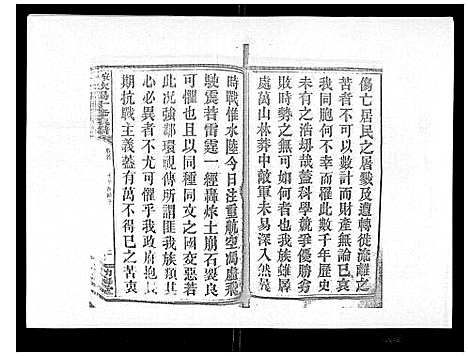 傷亡居民之屠戮及遭轉徙流離之
苦者不可以數計而財產無論已哀
我同胞何不幸而罹此數千年歷史
未有之浩刼哉蓋科學競爭優勝劣
敗時勢之無可如何者也我族雖厚
處萬山林莽中敵軍未易深入然莪
時戰惟水陸今日注重航空馮虛飛
駛震若雷霆一經轟炸土崩石裂良
可懼也且以同種同文之國交惡若
此况強鄰環視傳所謂匪我族類其
心必異者不尤可懼乎我政府抱長
期抗戰主義蓋有萬不得已之苦衷